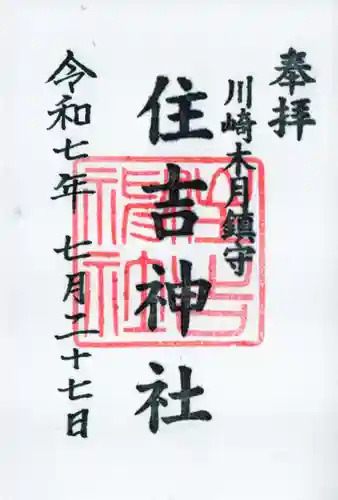 奉拝
川崎木月鎮守
住吉神社
令和七年 七月二十七日
住吉
神社